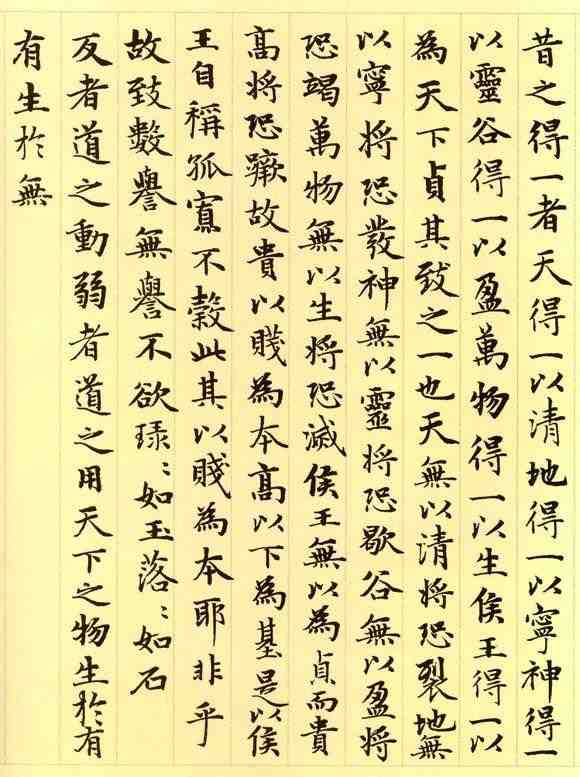 昔之得一者天得一以清地得一以寧神得一
以靈谷得一以盈萬物得一以生侯王得一以
為天下貞其致之一也天無以清將恐裂地無
以寧將恐發神無以靈將恐歇谷無以盈將
恐竭萬物無以生將恐滅侯王無以為貞而貴
高將恐蹶故貴以賤為本高以下為基是以侯
王自稱孤寡不穀此其以賤為本耶非乎
故致數譽無譽不欲琭〻如玉落〻如石
反者道之動弱者道之用天下之物生於有
有生於無